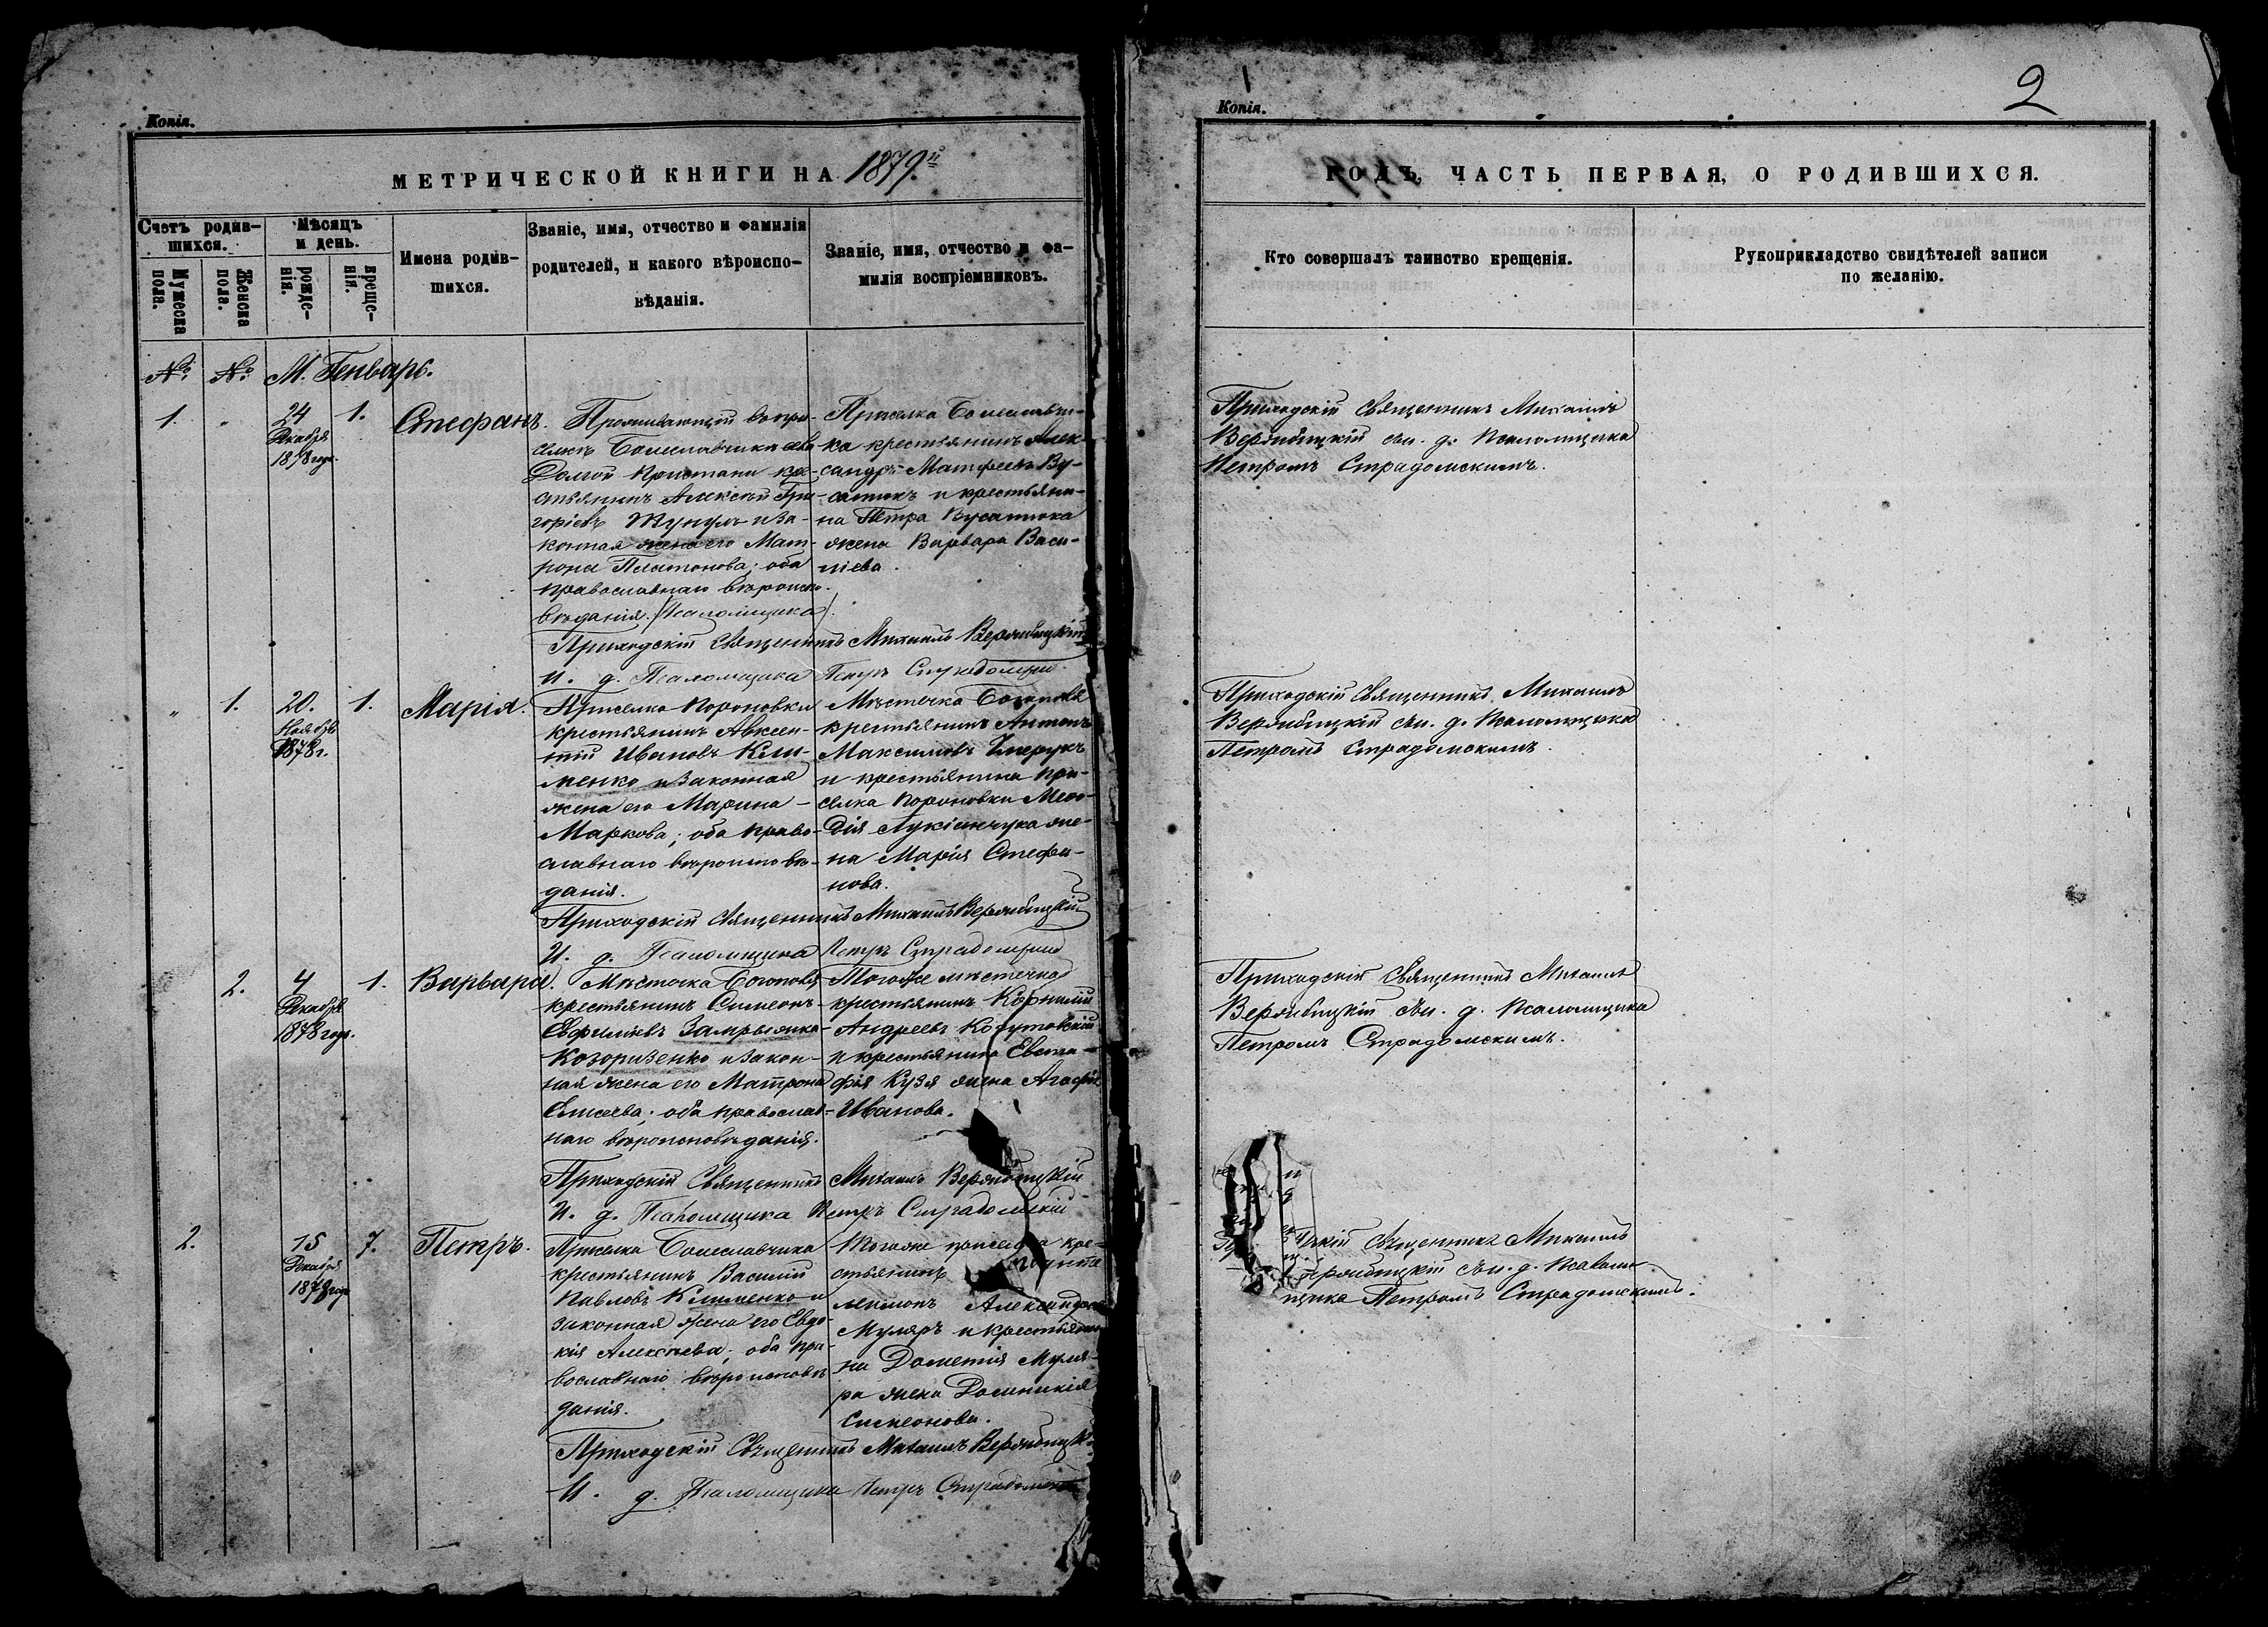 Копія.
МЕТРИЧЕСКОЙ КНИГИ НА 1879й
Счетъ родив-
шихся.
Мужеска
пола.
Женска
пола.
Мѣсяцъ
и день.
рожде-
нія.
креще-
нія.
Имена родив-
шихся.
Званіе, имя, отчество и фамилія
родителей, и какого вѣроиспо-
вѣданія.
Званіе, имя, отчество и фа-
милія воспріемниковъ.
№. №. М. Генварь.
1. " 24 Декабря 1878 года. 1. Стефанъ.
Проживающій въ при-
селкѣ Болеславчика село
Долгой Пристани кре-
стьянинъ Алексѣй Гри-
горіевъ и за-
конная жена его Мат-
рона Платонова; оба
православнаго вѣроиспо-
вѣданія. /Псаломщика/
Приселка Болеславчи-
ка крестьянинъ Алек-
сандръ Матфеевъ Ву-
сатюкъ и крестьяни-
на Петра Вусатюка
жена Варвара Васи-
ліева.
Приходскій Священникъ Михаилъ Вержбицкій
И. д. Псаломщика Петръ Страдомскій
" 1. 20. Ноября 1878 г. 1. Марія.
Приселка Пороновки
крестьянинъ Авксен-
тій Ивановъ Кли-
менко и законная
жена его Марина
Маркова; оба право-
славнаго вѣроисповѣ-
данія.
Мѣстечка
крестьянинъ Антонъ
Максимовъ
и крестьянина при-
селка Пороновки Меѳо-
дія Лукіянчука же-
на Марія Стефа-
нова.
Приходскій Священникъ Михаилъ Вержбицкій
И. д. Псаломщика Петръ Страдомскій
2. 4 Декабря 1878 года. 1. Варвара.
Мѣстечка
крестьянинъ Симеонъ
Евфиміевъ
Козоризенко и закон-
ная жена его Матрона
Елисеева; оба православ-
наго вѣроисповѣданія.
Тогоже мѣстечка
крестьянинъ Корнилій
Андреевъ
и крестьянина Евста-
фія Кузя жена Агафія
Иванова.
Приходскій Священникъ Михаилъ Вержбицкій
И. д. Псаломщика Петръ Страдомскій
2. 15 Декабря 1878 года 7. Петръ.
Приселка Болеславчика
крестьянинъ Василій
Павловъ Клименко и
законная жена его Евдо-
кія Алексѣева; оба пра-
вославнаго вѣроисповѣ-
данія.
Тогоже приселка кре-
стьянинъ
Александровъ
Муляръ и крестьяни-
на Дометія Муля-
ра жена Домникія
Симеонова.
Приходскій Священникъ Михаилъ Вержбицкій
И. д. Псаломщика Петръ Страдомскій
Копія.
2
ГОДЪ, ЧАСТЬ ПЕРВАЯ, О РОДИВШИХСЯ.
Кто совершалъ таинство крещенія.
Рукоприкладство свидѣтелей записи
по желанію.
Приходскій Священникъ Михаилъ
Вержбицкій съ и. д. Псаломщика
Петромъ Страдомскимъ.
Приходскій Священникъ Михаилъ
Вержбицкій съ и. д. Псаломщика
Петромъ Страдомскимъ.
Приходскій Священникъ Михаилъ
Вержбицкій съ и. д. Псаломщика
Петромъ Страдомскимъ.
скій Священникъ Михаилъ
ержбицкій съ и. д. Псалом-
щика Петромъ Страдомскимъ.